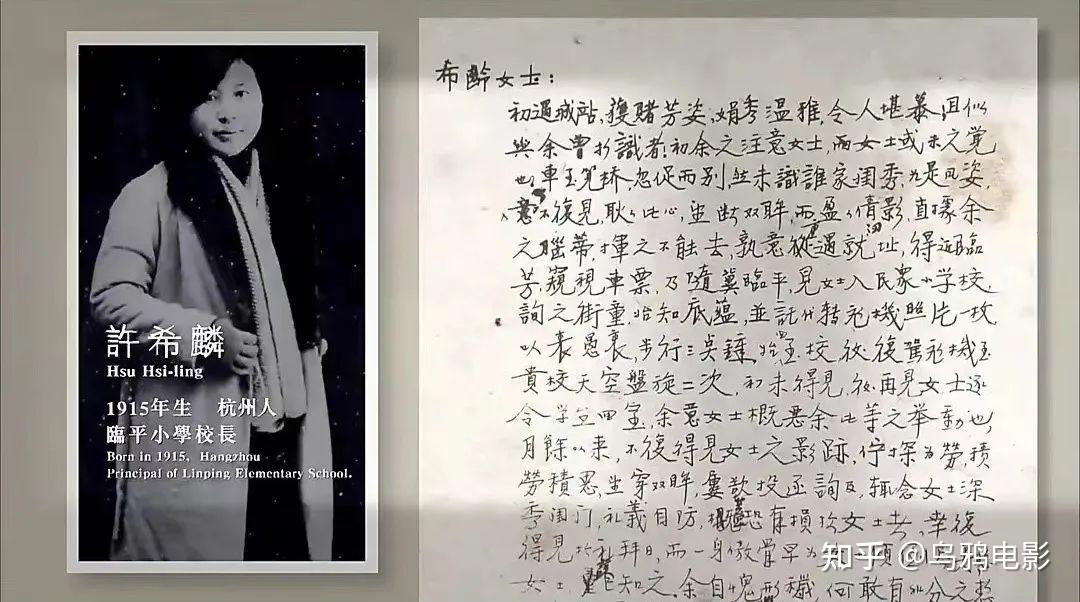 許希麟
Hsu Hsi-ling
1915年生 杭州人
臨平小學校長
Born in 1915, Hangzhou
Principal of Linping Elementary School.
希齡女士：
初遇城站，獲睹芳姿，娟秀温雅，令人堪慕，且似
與余曾打識者，初余之注意女士，而女士或未之覚
也，車至筧桥，忽促而别，然未識誰家閨秀，如是風姿，
意不復見，耿々此心，望断双眸，而盈々倩影，直據余
之腦蒂，揮之不能去，孰意從遇就址，得近臨
芳，窺視車票，乃隨冀臨平，見女士入民衆小学校，
詢之街童，始知底蘊，並託代转飛機照片一枚
以表愚衷，步行三 始至校，後駕飛機至
貴校天空盤旋二次，初未得見，後再見女士逐
令学生回室，余意女士概惡余此等之举動也，
月餘以来，不復得見女士之影跡，佇探为勞，積
勞積思，坐穿双眸，屢欲投函詢及，輒念女士深
秀閨门，礼義自防，恐有損於女士者，幸復
得見於礼拜日，而一身傲骨早为
女士 知之，余自愧形穢，何敢有非分之
知乎 @乌鸦电影